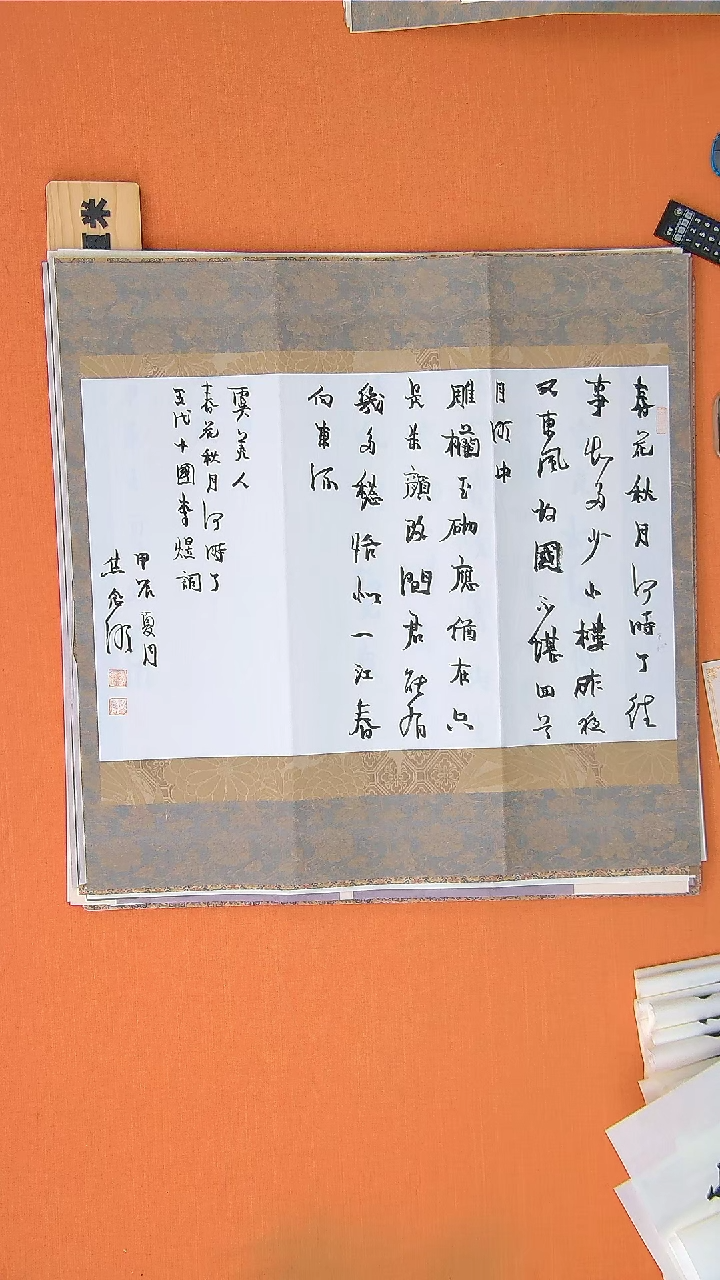 春花秋月何時了往
事知多少小樓昨夜
又東風故國不堪回首
月明中
雕欄玉砌應猶在只
是朱顏改問君能有
幾多愁恰似一江春
向東流
虞美人
春花秋月何時了
五代十國李煜詞
甲辰夏月
米